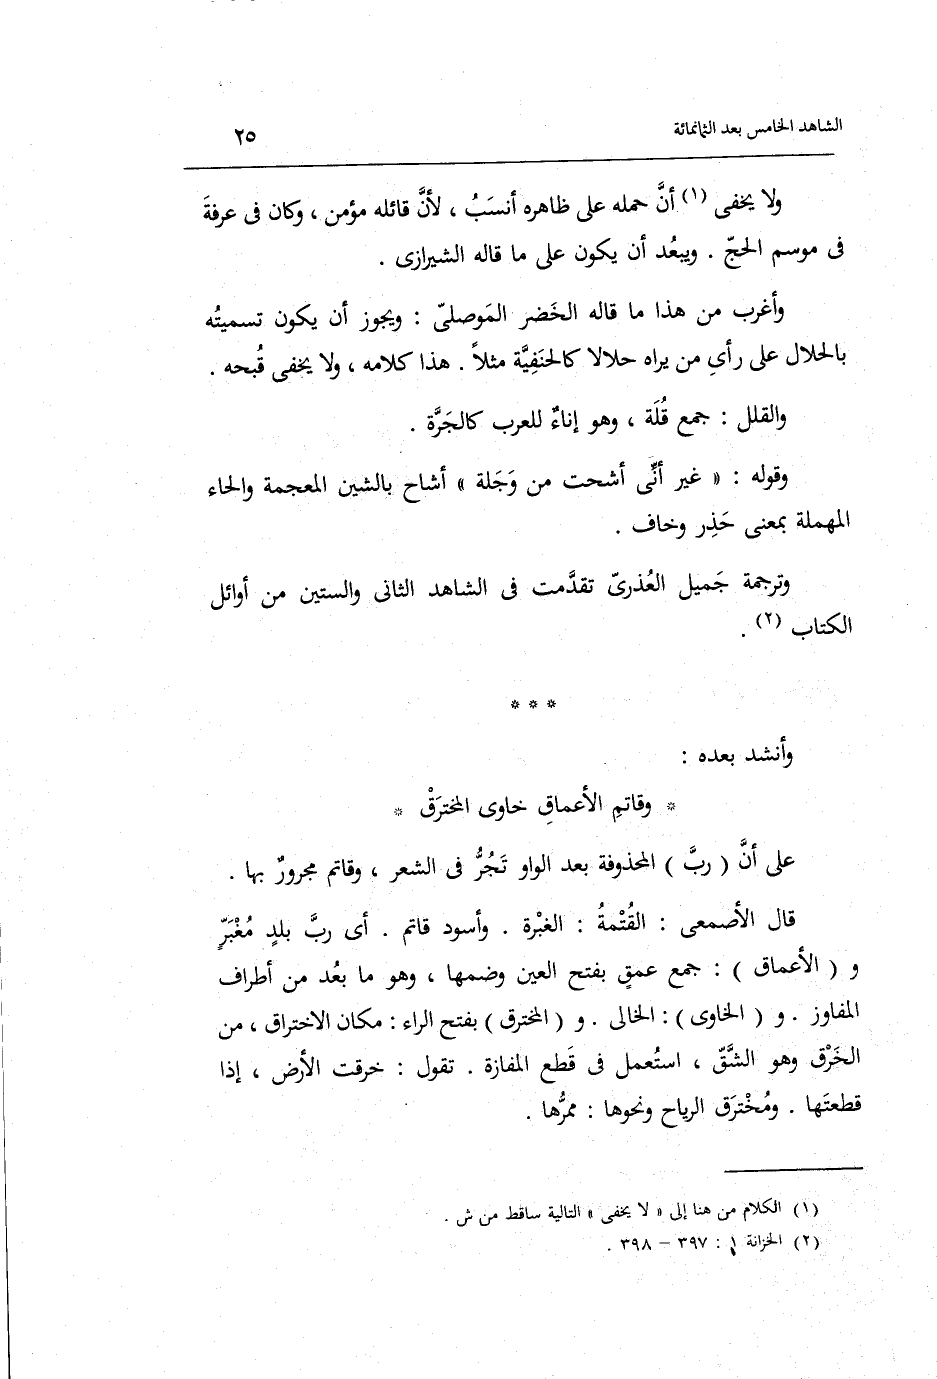 الشاهد الخامس بعد الثمانمائة
٢٥
ولا يخفى (١) أنَّ حمله على ظاهره أنسَبُ ، لأنَّ قائله مؤمن ، وكان فى عرفةَ
فى موسم الحجّ . ويبعُد أن يكون على ما قاله الشيرازى .
وأغرب من هذا ما قاله الخَضر المَوصلىّ : ويجوز أن يكون تسميتُه
بالحلال على رأىِ من يراه حلالا كالحنَفِيَّة مثلاً . هذا كلامه ، ولا يخفى قُبحه .
والقلل : جمع قُلَة ، وهو إناءٌ للعرب كالجَرَّة .
وقوله : « غير أنِّى أشحت من وَجَلة » أشاح بالشين المعجمة والحاء
المهملة بمعنى حَذِر وخاف .
وترجمة جَميل العُذرىّ تقدَّمت فى الشاهد الثانى والستين من أوائل
الكتاب (٢) .
* * *
وأنشد بعده :
* وقاتمِ الأعماقِ خاوى المخترَقْ *
على أنَّ ( ربَّ ) المحذوفة بعد الواو تَجُرُّ فى الشعر ، وقاتم مجرورٌ بها .
قال الأصمعى : القُتْمةُ : الغبْرة . وأسود قاتم . أى ربَّ بلدٍ مُغْبَرٍّ
و ( الأعماق ) : جمع عمقٍ بفتح العين وضمها ، وهو ما بعُد من أطراف
المفاوز . و ( الخاوى ) : الخالى . و ( المخترق ) بفتح الراء : مكان الاختراق ، من
الخَرْق وهو الشَّقّ ، استُعمل فى قَطع المفازة . تقول : خرقت الأرض ، إذا
قطعتَها . ومُخْترَق الرياح ونحوها : ممرُّها .
(١) الكلام من هنا إلى « لا يخفى » التالية ساقط من ش .
(٢) الخزانة ١ : ٣٩٧ – ٣٩٨ .